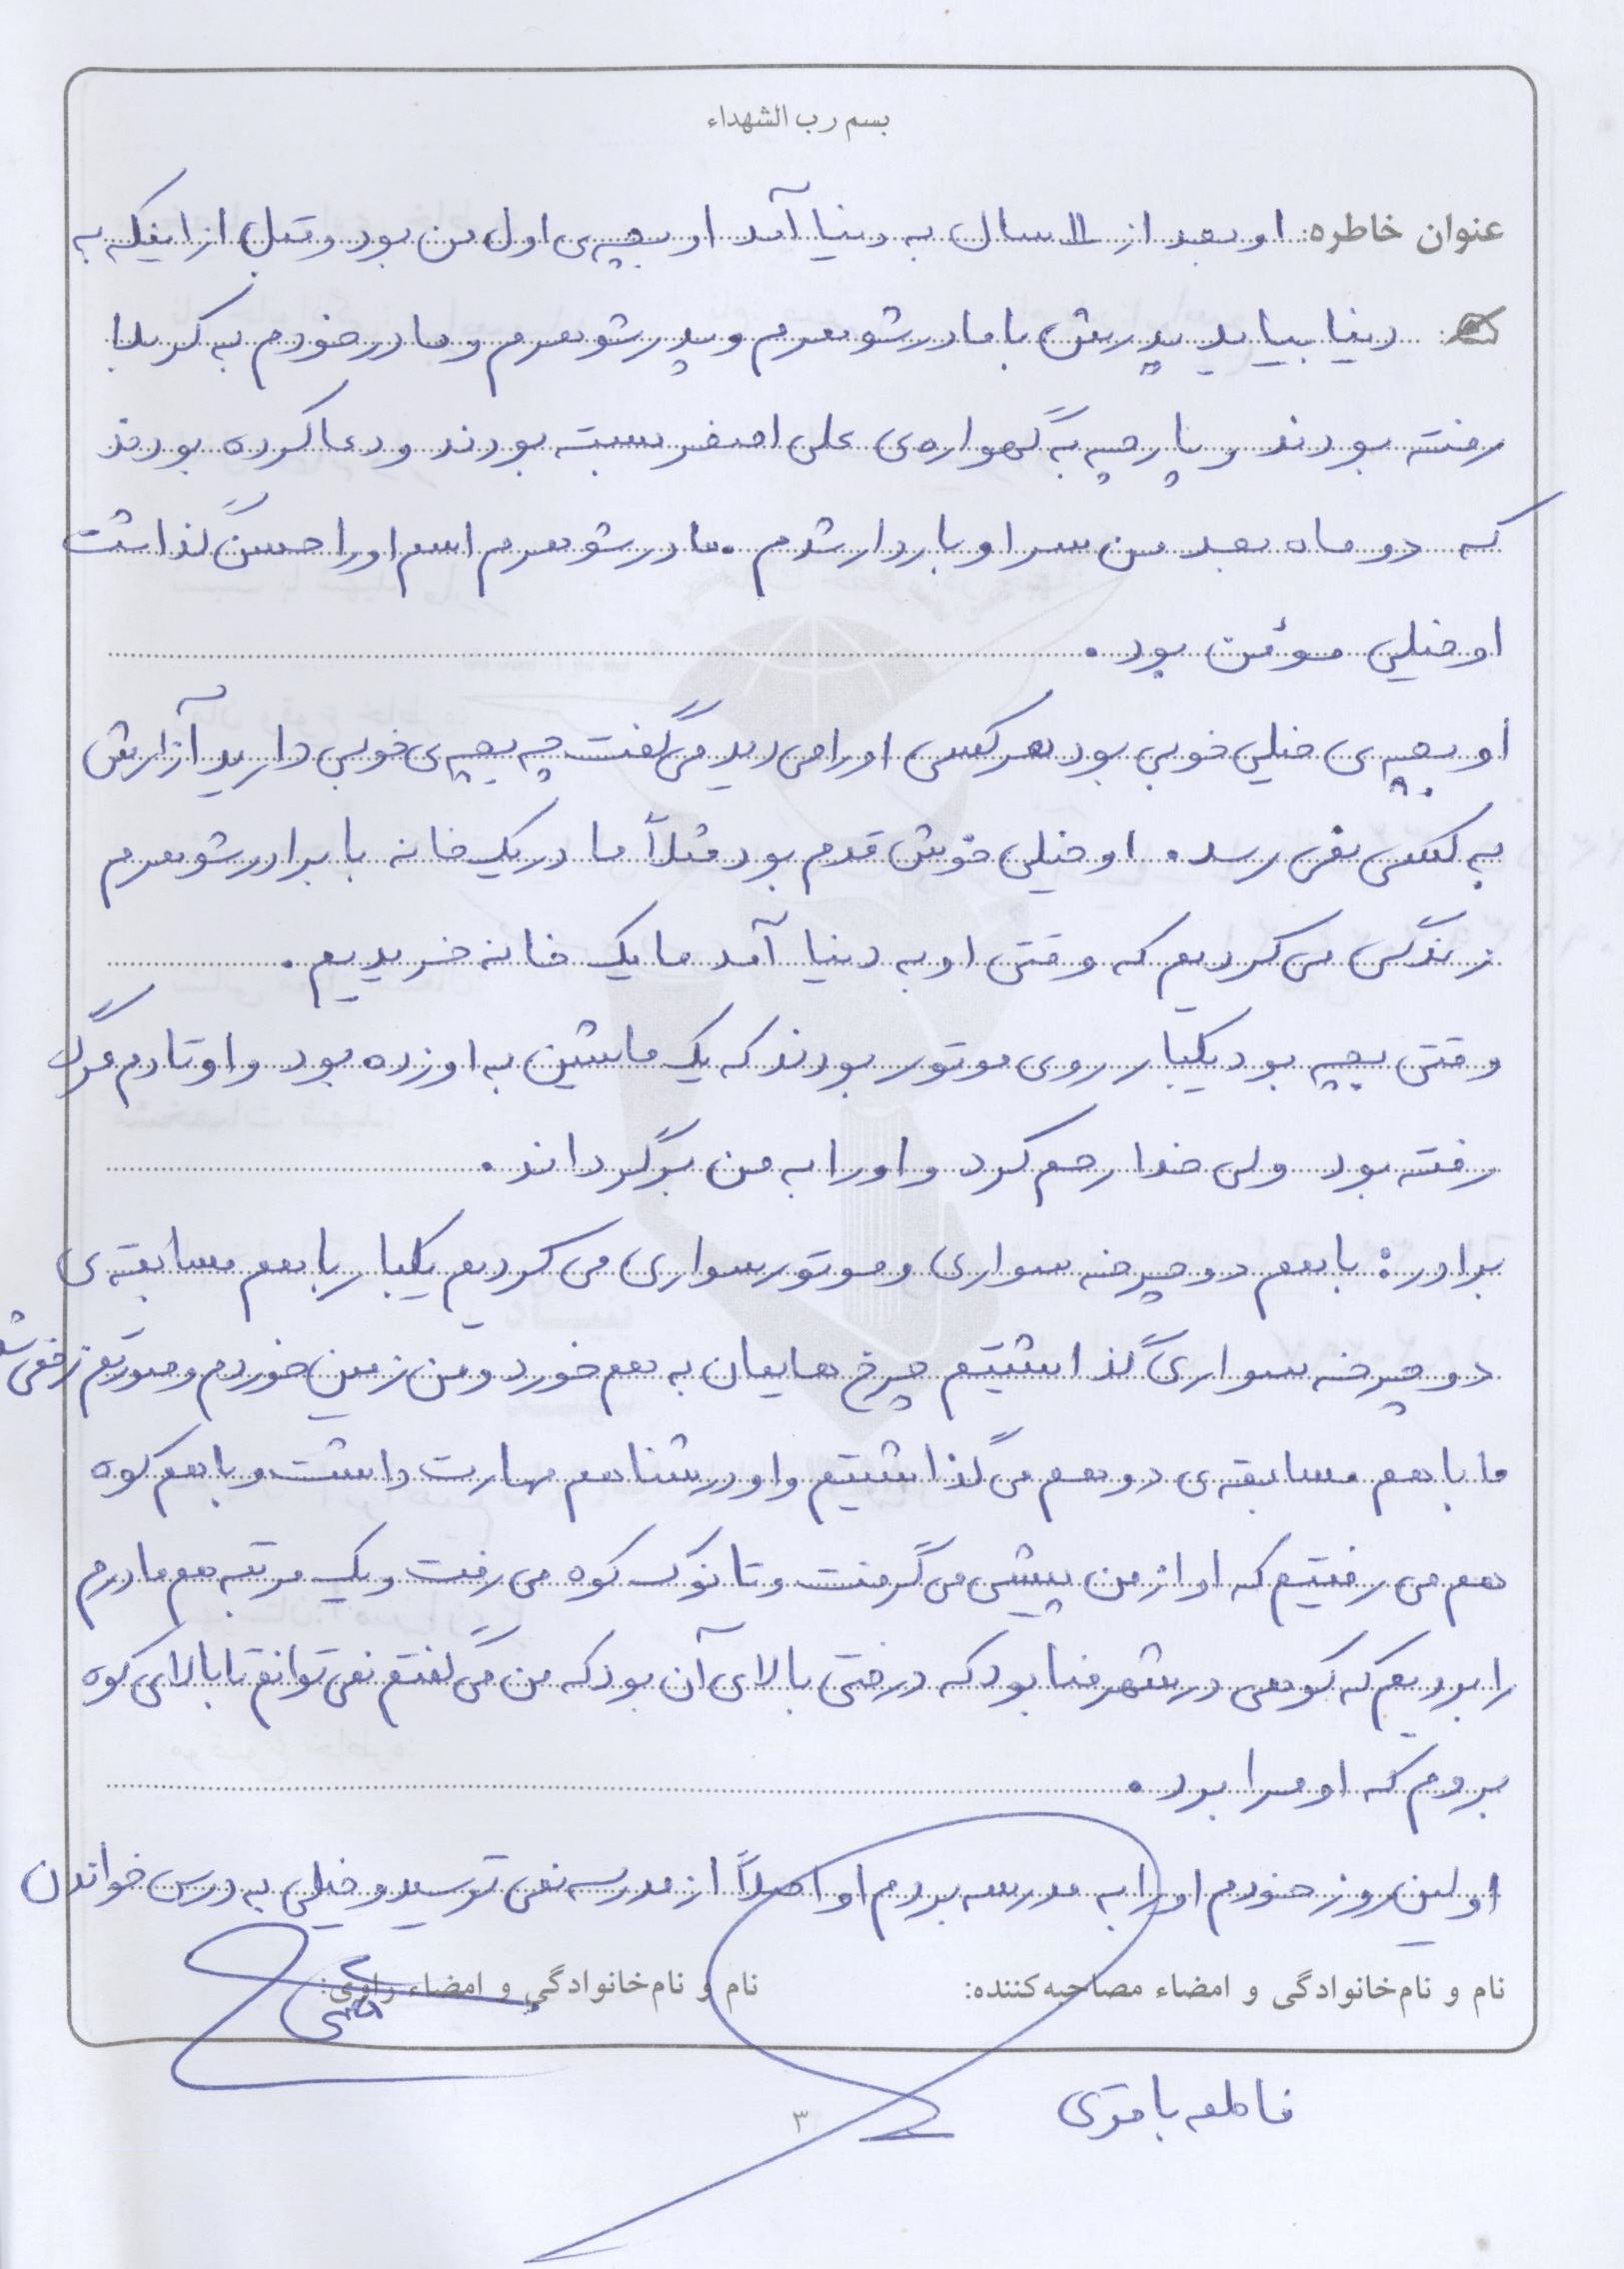 بسم رب الشهداء
عنوان خاطره: او بعد از ۱۱ سال به دنیا آمد او بچه‌ی اول من بود و قبل از اینکه به
دنیا بیاید پدرش با مادر شوهرم و پدر شوهرم و مادر خودم به کربلا
رفته بودند و پارچه به گهواره‌ی علی اصغر بسته بودند و دعا کرده بودند
که دو ماه بعد من سر او باردار شدم . مادر شوهرم اسم او را حسن گذاشت
او خیلی مؤمن بود .
او بچه‌ی خیلی خوبی بود هر کسی او را می دید می گفت چه بچه‌ی خوبی دارید آزارش
به کسی نمی رسد . او خیلی خوش قدم بود مثلاً ما در یک خانه با برادر شوهرم
زندگی می کردیم که وقتی او به دنیا آمد ما یک خانه خریدیم .
وقتی بچه بود یکبار روی موتور بودند که یک ماشین به او زده بود و او تا دم مرگ
رفته بود ولی خدا رحم کرد و او را به من برگرداند .
برادر: با هم دوچرخه سواری و موتور سواری می کردیم یکبار با هم مسابقه‌ی
دوچرخه سواری گذاشتیم چرخ هایمان به هم خورد و من زمین خوردم و صورتم زخمی
ما با هم مسابقه‌ی دو هم می گذاشتیم و او در شنا هم مهارت داشت و با هم کوه
هم می رفتیم که او از من پیشی می گرفت و تا نوک کوه می رفت و یک مرتبه هم مادرم
را بردیم که کوهی در شهر بود که درختی بالای آن بود که من می گفتم نمی توانم تا بالای کوه
بروم که او مرا برد .
اولین روز خودم او را به مدرسه بردم او اصلاً از مدرسه نمی ترسید و خیلی به درس خواندن
نام و نام‌خانوادگی و امضاء مصاحبه‌کننده: نام و نام‌خانوادگی و امضاء راوی:
فاطمه باقری
۳